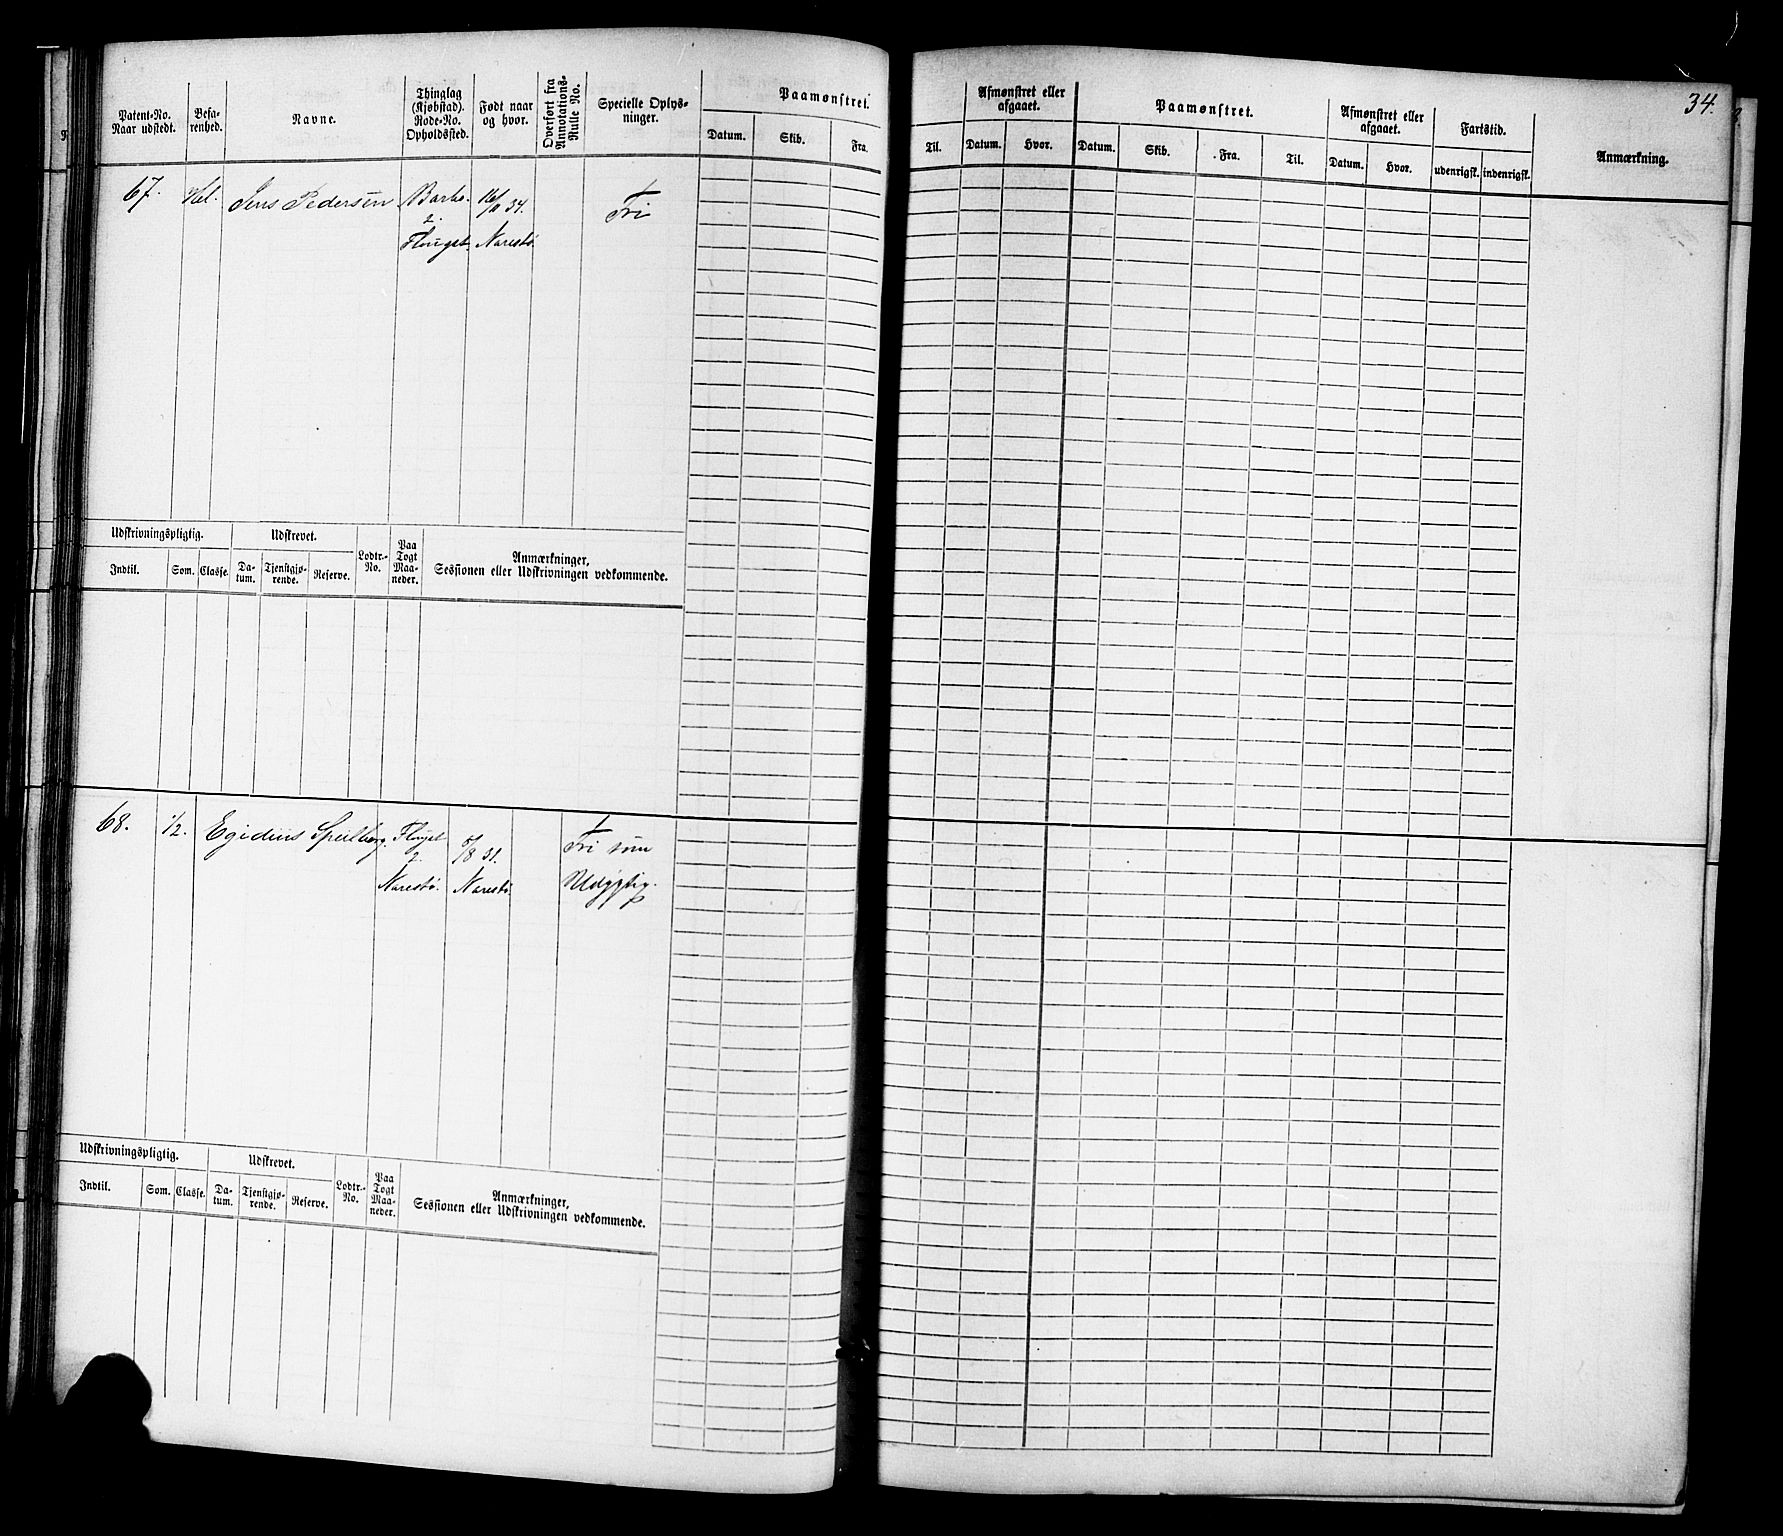 34.
Patent-No. Naar udstedt.
Befarenhed.
Navne.
Thinglag (Kjøbstad). Rode-No. Opholdssted.
Født naar og hvor.
Overført fra Annotations-Rulle No.
Specielle Oplysninger.
Paamønstret.
Datum. Skib. Fra.
Til.
Afmønstret eller afgaaet.
Datum. Hvor.
Paamønstret.
Datum. Skib. Fra. Til.
Afmønstret eller afgaaet.
Datum. Hvor.
Fartstid.
udenrigsk. indenrigsk.
Anmærkning.
67. Hel. Jens Pedersen
2.
16/11 34.
Narestø.
Fri
Udskrivningspligtig. Udskrevet. Lodtr.-No. Paa Togt Maaneder. Anmærkninger, Sessionen eller Udskrivningen vedkommende.
Indtil. Som. Classe. Datum. Tjenstgjørende. Reserve.
68. 1/2. Egidius
2.
Narestø.
5/8 31.
Narestø.
Fri som
Udygtig.
Udskrivningspligtig. Udskrevet. Lodtr.-No. Paa Togt Maaneder. Anmærkninger, Sessionen eller Udskrivningen vedkommende.
Indtil. Som. Classe. Datum. Tjenstgjørende. Reserve.